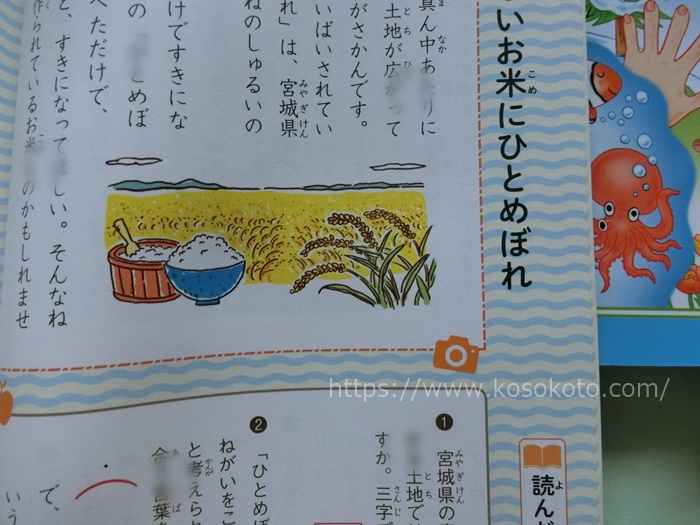 いお米にひとめぼれ
こめ
真ん中あ りに
ま なか
土地が広 って
とち ひ
がさかんです。
いっぱいされてい
れ」は、宮城県
みやぎけん
ねのしゅるいの
けですきにな
の とめぼ
ただけで、
と、すきになって しい。そんなね
作られているお米 のかもしれませ
https://www.kosokoto.com/
読ん
よ
❶ 宮城県の
みやぎけん
土地で
とち
すか。三字
さんじ
❷ 「ひとめぼ
ねがいをこ
と考えら
かんが
で、
いう